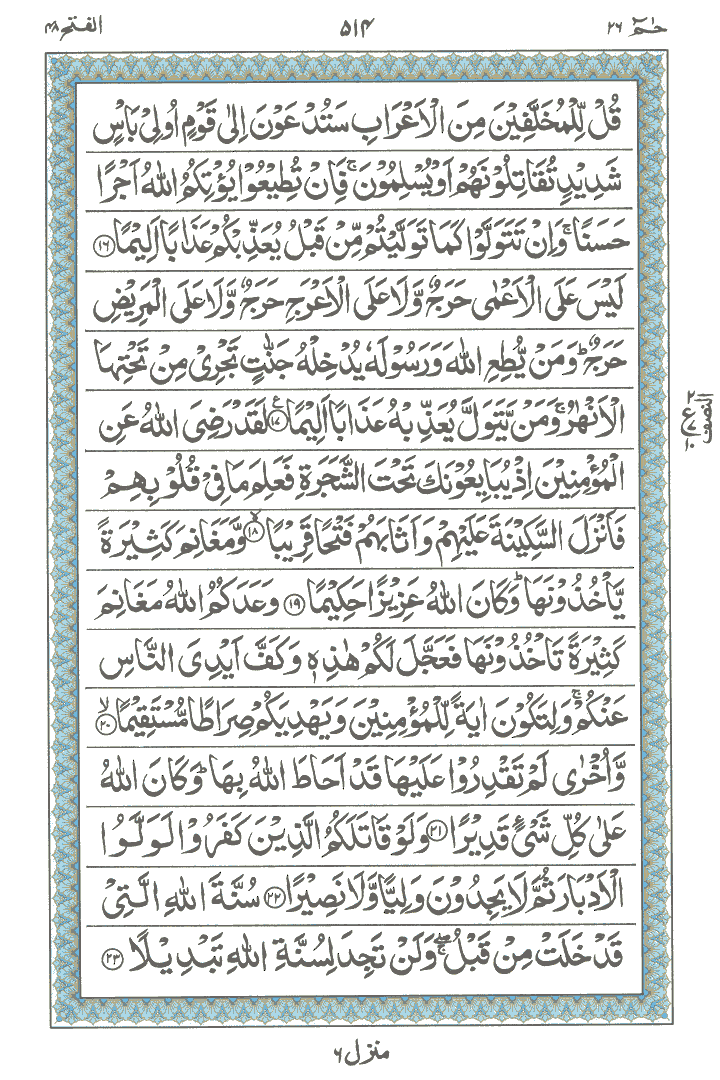 حٰمٓ ۲۶ ۵۱۴ الفتح ۴۸
قُلْ لِّلْمُخَلَّفِيْنَ مِنَ الْاَعْرَابِ سَتُدْعَوْنَ اِلٰى قَوْمٍ اُولِىْ بَاْسٍ
شَدِيْدٍ تُقَاتِلُوْنَهُمْ اَوْ يُسْلِمُوْنَ ۚ فَاِنْ تُطِيْعُوْا يُؤْتِكُمُ اللّٰهُ اَجْرًا
حَسَنًا ۚ وَاِنْ تَتَوَلَّوْا كَمَا تَوَلَّيْتُمْ مِّنْ قَبْلُ يُعَذِّبْكُمْ عَذَابًا اَلِيْمًا ۝۱۶
لَيْسَ عَلَى الْاَعْمٰى حَرَجٌ وَّلَا عَلَى الْاَعْرَجِ حَرَجٌ وَّلَا عَلَى الْمَرِيْضِ
حَرَجٌ ؕ وَمَنْ يُّطِعِ اللّٰهَ وَرَسُوْلَهٗ يُدْخِلْهُ جَنّٰتٍ تَجْرِىْ مِنْ تَحْتِهَا
الْاَنْهٰرُ ۚ وَمَنْ يَّتَوَلَّ يُعَذِّبْهُ عَذَابًا اَلِيْمًا ۝۱۷ع لَقَدْ رَضِىَ اللّٰهُ عَنِ
الْمُؤْمِنِيْنَ اِذْ يُبَايِعُوْنَكَ تَحْتَ الشَّجَرَةِ فَعَلِمَ مَا فِىْ قُلُوْبِهِمْ
فَاَنْزَلَ السَّكِيْنَةَ عَلَيْهِمْ وَاَثَابَهُمْ فَتْحًا قَرِيْبًا ۙ‏۝۱۸ وَّمَغَانِمَ كَثِيْرَةً
يَّاْخُذُوْنَهَا ؕ وَكَانَ اللّٰهُ عَزِيْزًا حَكِيْمًا ۝۱۹ وَعَدَكُمُ اللّٰهُ مَغَانِمَ
كَثِيْرَةً تَاْخُذُوْنَهَا فَعَجَّلَ لَكُمْ هٰذِهٖ وَكَفَّ اَيْدِىَ النَّاسِ
عَنْكُمْ ۚ وَلِتَكُوْنَ اٰيَةً لِّلْمُؤْمِنِيْنَ وَيَهْدِيَكُمْ صِرَاطًا مُّسْتَقِيْمًا ۙ‏۝۲۰
وَّاُخْرٰى لَمْ تَقْدِرُوْا عَلَيْهَا قَدْ اَحَاطَ اللّٰهُ بِهَا ؕ وَكَانَ اللّٰهُ
عَلٰى كُلِّ شَىْءٍ قَدِيْرًا ۝۲۱ وَلَوْ قَاتَلَكُمُ الَّذِيْنَ كَفَرُوْا لَوَلَّوُا
الْاَدْبَارَ ثُمَّ لَا يَجِدُوْنَ وَلِيًّا وَّلَا نَصِيْرًا ۝۲۲ سُنَّةَ اللّٰهِ الَّتِىْ
قَدْ خَلَتْ مِنْ قَبْلُ ۖۚ وَلَنْ تَجِدَ لِسُنَّةِ اللّٰهِ تَبْدِيْلًا ۝۲۳
النصف
منزل ۶